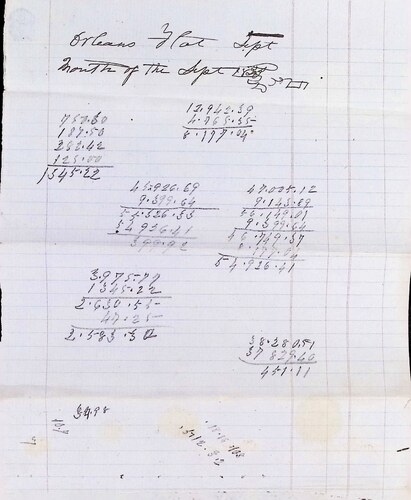 Orleans Flat Sept
Month of the Sept
187.50
282.42
125.00
1345.22
12.942.59
4.765.55
8.177.04
45.926.69
9.399.64
55.326.33
54.926.41
399.92
47.005.12
9.143.89
56.149.01
9.399.64
46.749.37
8.177.04
54.926.41
3.975.77
1345.22
2.630.55
47.25
2.583.30
38.280.51
37 829.40
451.11
34.98